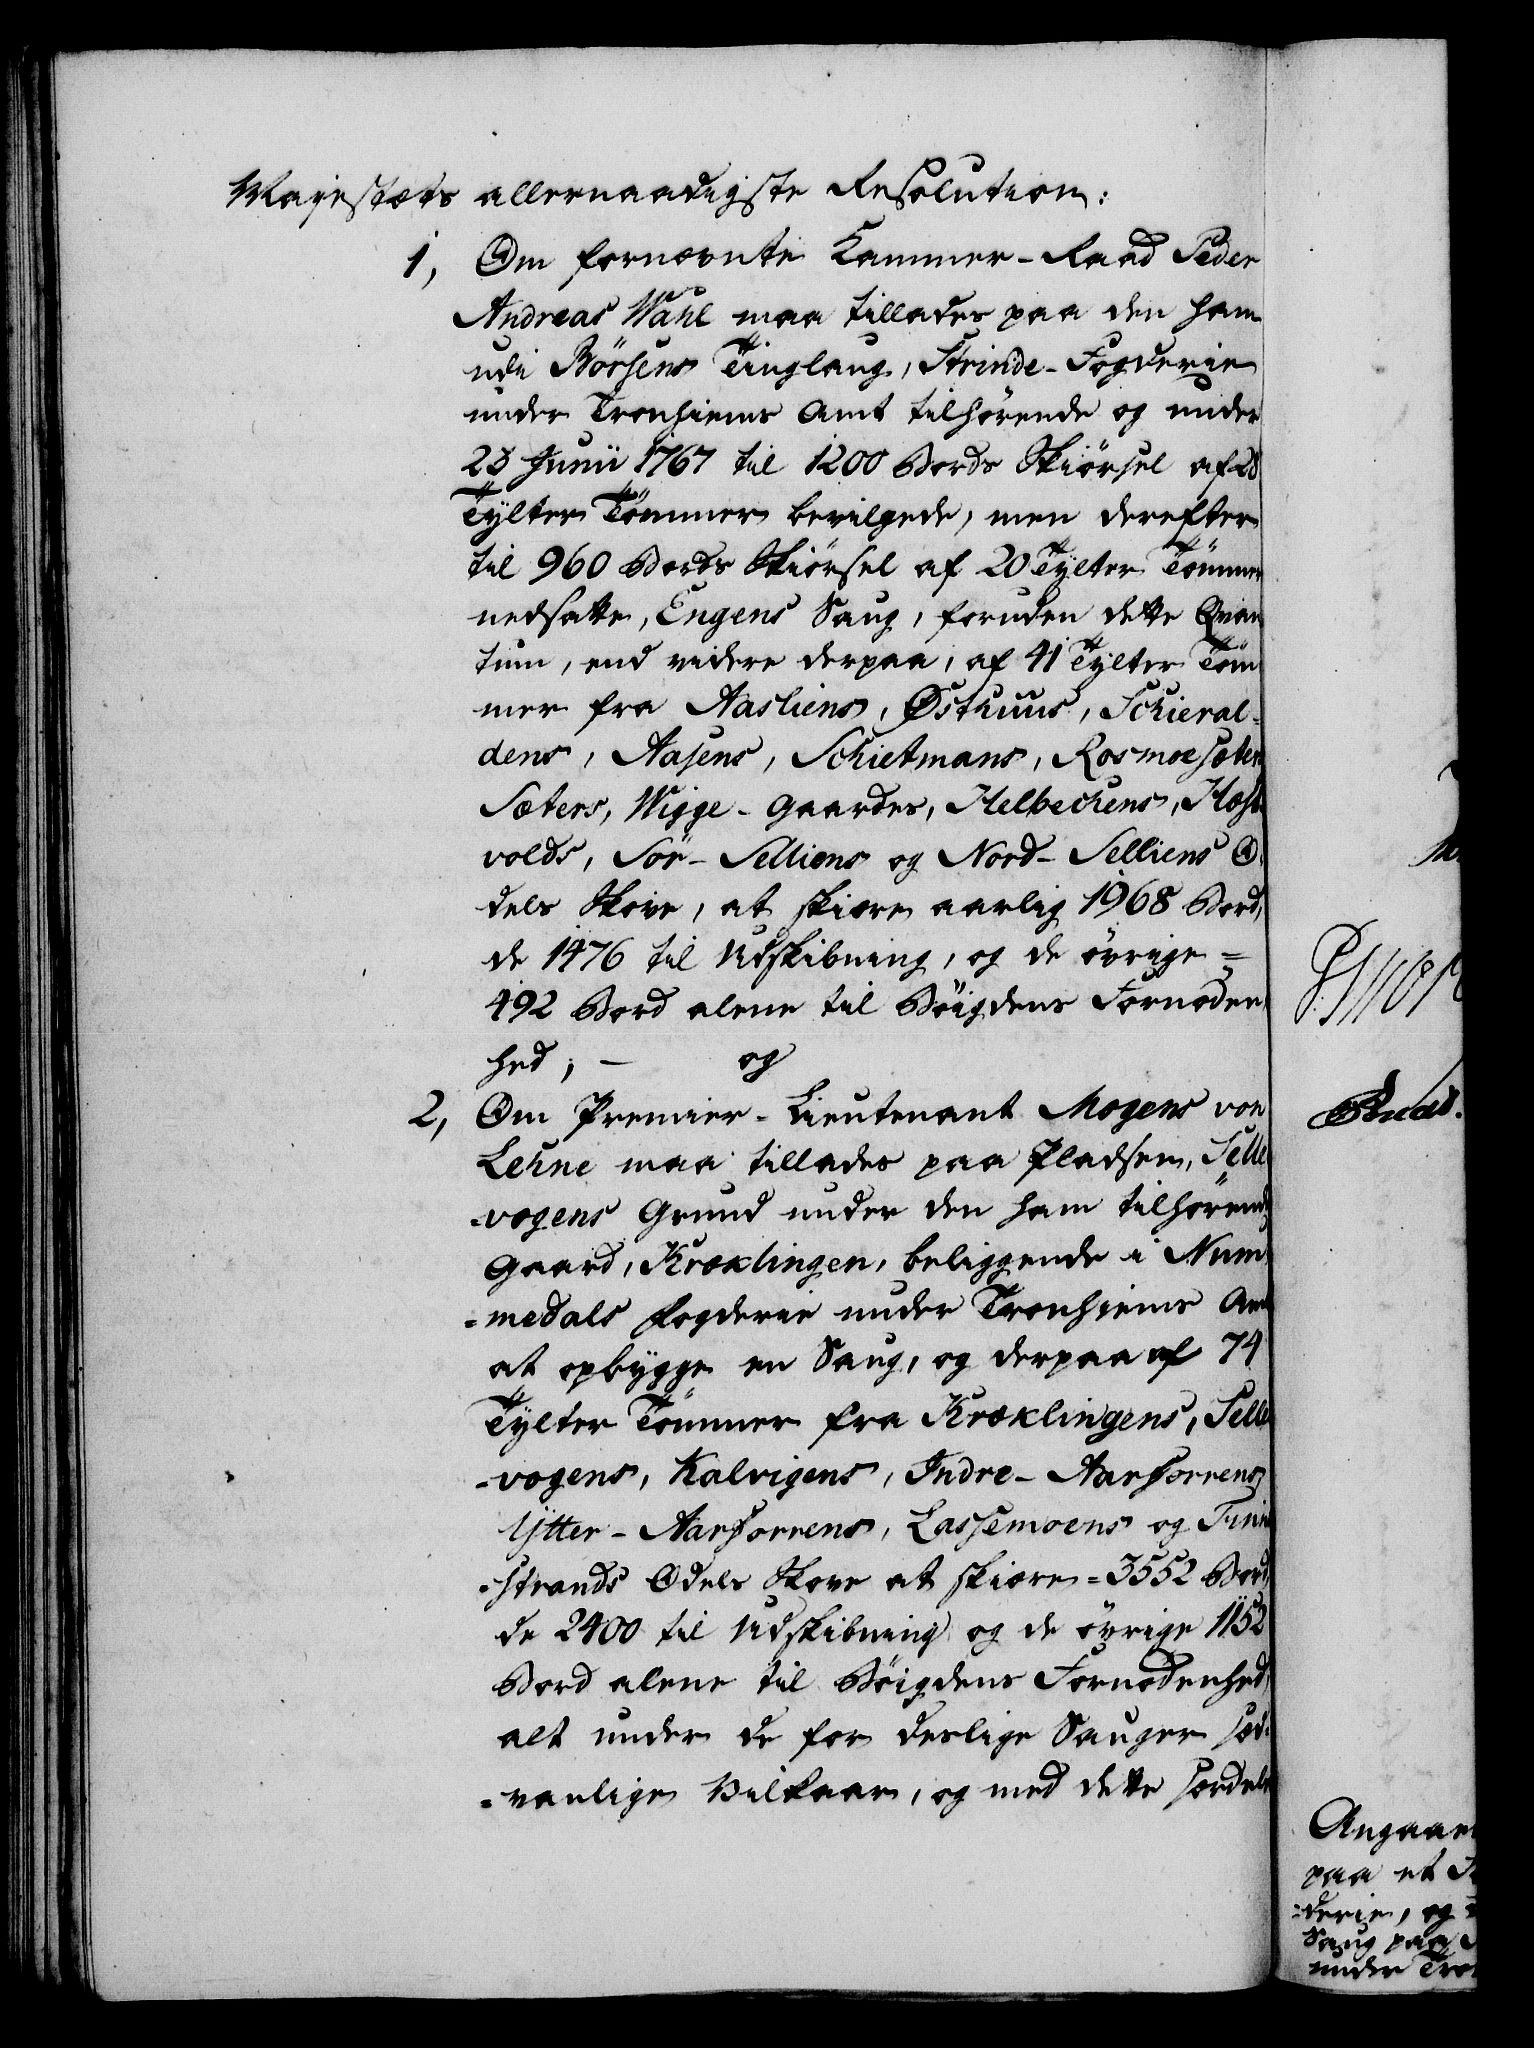 Majestæts allernaadigste Resolution:
1, Om fornævnte Kammer-Raad Peder
Andreas Wahl maa tillades paa den ham
udi Börsens Tinglaug, Strinde-Fogderie
under Tronhiems Amt tilhörende og under
23 Junii 1767 til 1200 Bords Skiörsel af 28
Tylter Tömmer bevilgede, men derefter
til 960 Bords Skiörsel af 20 Tylter Tömmer
nedsatte, Engens Saug, foruden dette Qvan
tum, end videre derpaa, af 41 Tylter Töm
mer fra Aasliens, Østhuus, Schieral-
dens, Aasens, Schietmans, Rosmoesæter
Sæters, Wigge-Gaardes, Helbechens, Hæst
volds, Sör-Selliens og Nord-Selliens O-
dels Skove, at skiære aarlig 1968 Bord,
de 1476 til Udskibning, og de övrige =
492 Bord alene til Böigdens Fornöden
hed; - og
2, Om Premier-Lieutenant Mogens von
Lehne maa tillades paa Pladsen, Selle
-vogens Grund under den ham tilhörende
Gaard, Kræklingen, beliggende i Num
=medals Fogderie under Tronhiems Amt
at opbygge en Saug, og derpaa af 74
Tylter Tömmer fra Kræklingens, Selle
-vogens, Kalvigens, Indre-Aarforrens
Ytter-Aarforrens, Lassemoens og Finne
-strands Odels Skove at skiære = 3552 Bord
de 2400 til Udskibning og de övrige 1152
Bord alene til Böigdens Fornödenhed,
alt under de for deslige Sauger sæd-
=vanlige Vilkaar, og med dette særdeles
Angaaen
paa et
=derie, og
Saug paa
under Tron